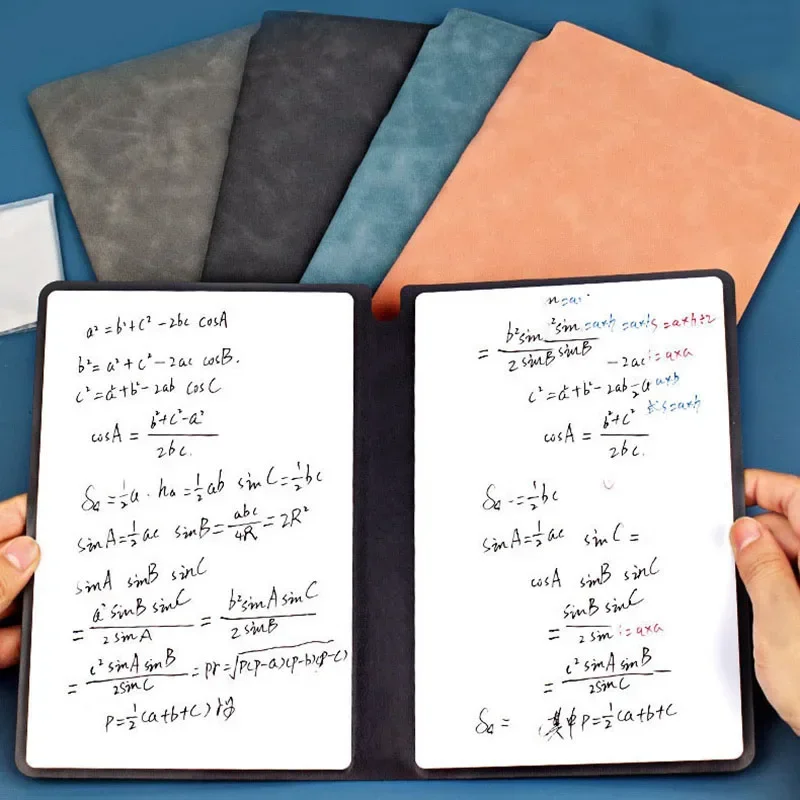 a² = b² + c² - 2bc cosA
b² = a² + c² - 2ac cosB.
c² = a² + b² - 2ab cosC
cosA = (b² + c² - a²) / 2bc.
S△ = ½a · ha = ½ab sinC = ½bc
sinA = ½ac sinB = abc / 4R = 2R²
sinA sinB sinC
= a² sinB sinC / 2 sinA = b² sinA sinC / 2 sinB
= c² sinA sinB / 2sinC = pr = √p(p-a)(p-b)(p-c)
P = ½(a+b+c)
= b² sin sin / 2 sinB sinB = a×h = a×h s = a×h÷2
-2ac = a×a
c² = a² + b² - 2ab ½ a×b
长 s = a×h
cosA = b² + c² / 2bc.
S△ = ½bc
sinA = ½ac sinC =
cosA sinB sinC
= sinB sinC / 2 sin = a×a
= c² sinA sinB / 2sinC
S△ = 其中 P = ½(a+b+c